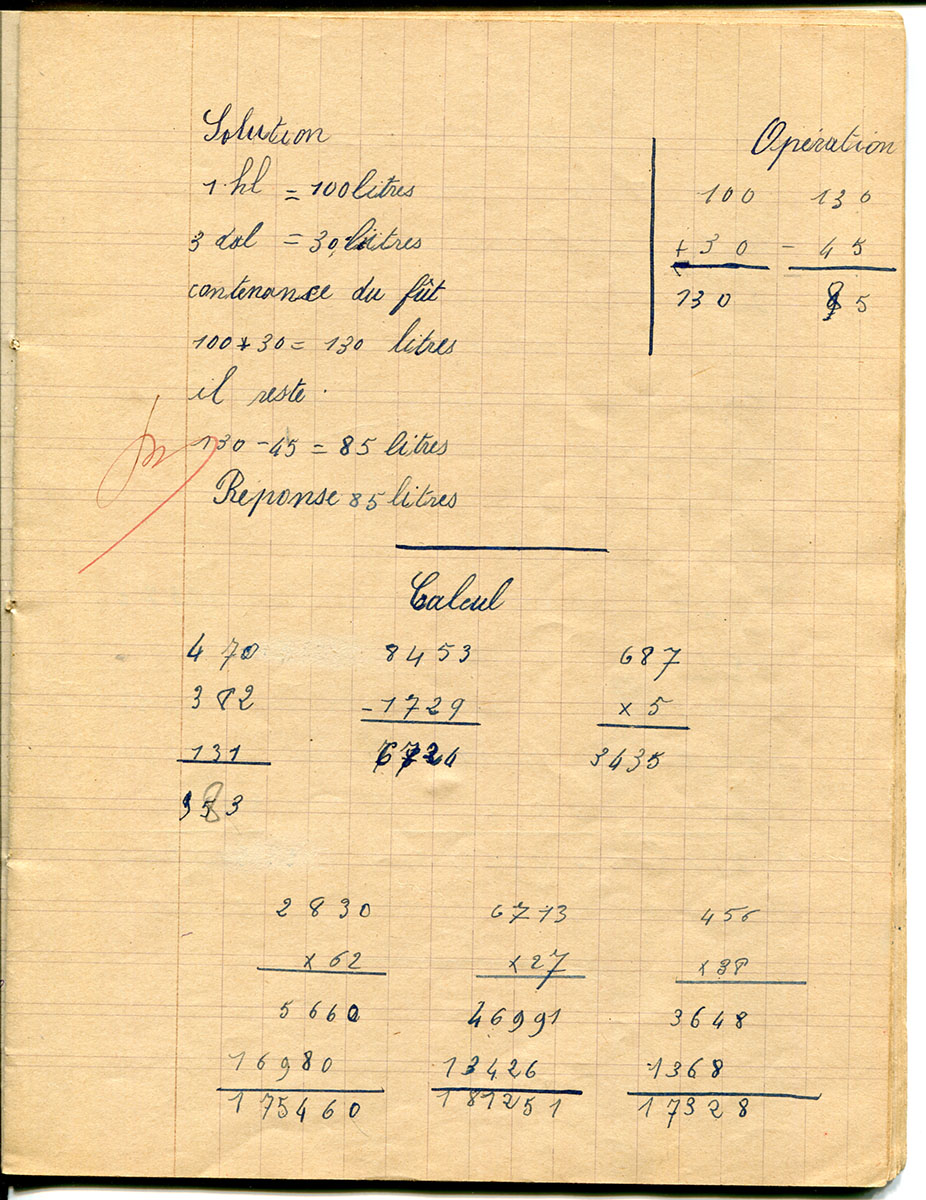 Solution
1 hl = 100 litres
3 dal = 30 litres
contenance du fût
100 + 30 = 130 litres
il reste
130 - 45 = 85 litres
Réponse 85 litres
Opération
100 130
+ 30 - 45
130 85
Calcul
470 8453 687
382 -1729 x 5
131 6724 3435
983
2830 6713 456
x 62 x 27 x 38
5660 46991 3648
16980 13426 1368
175460 181251 17328